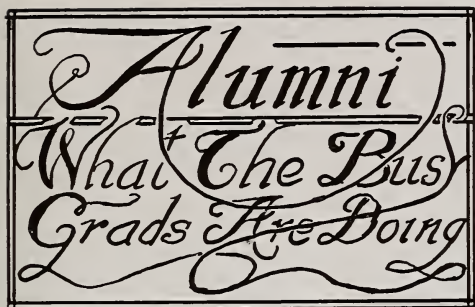 Alumni
What The Busy
Grads Are Doing